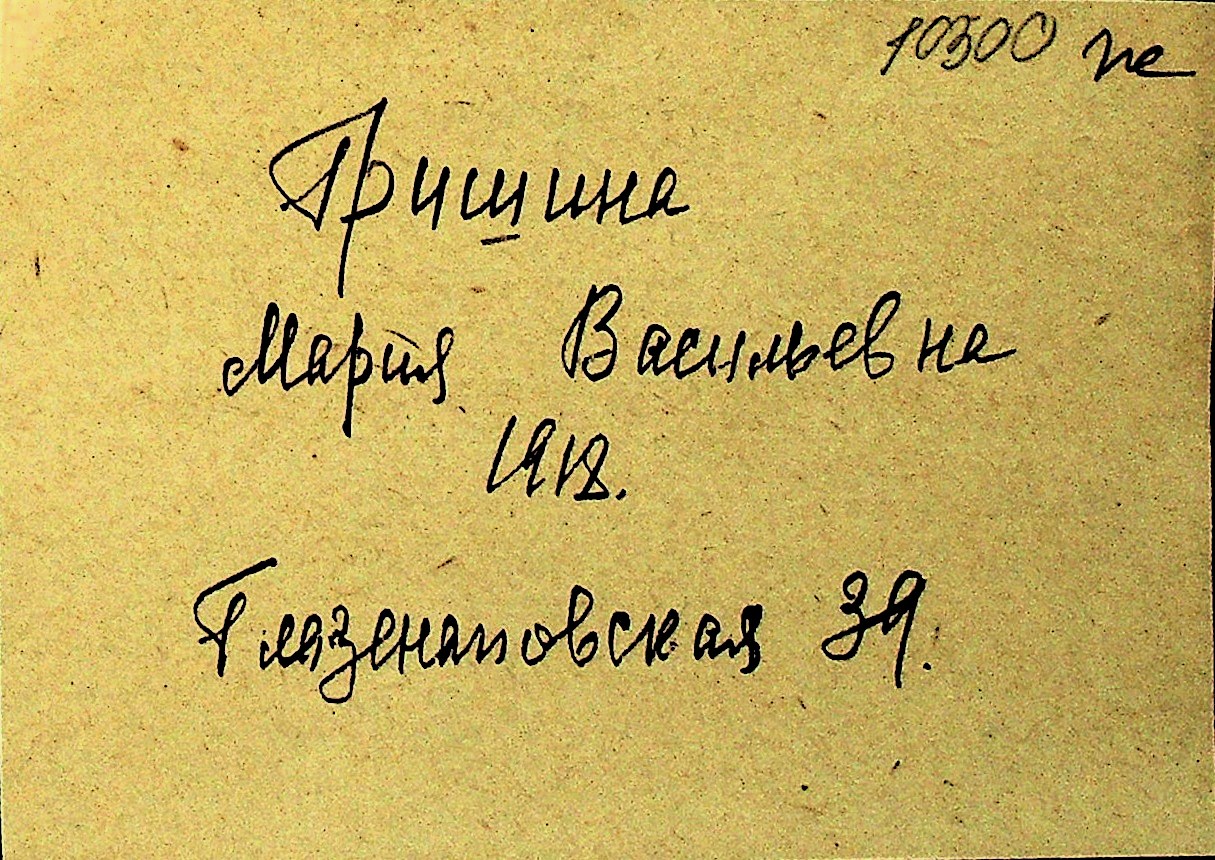 10300 пе
Гришина
Мария Васильевна
1918.
Глазенаповская 39.